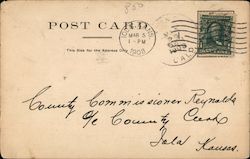 POST CARD
This Side for the Address Only
MAR 5
1 - PM
1908
County Commissioner Reynolds
c/o County Clerk
Iola Kansas.